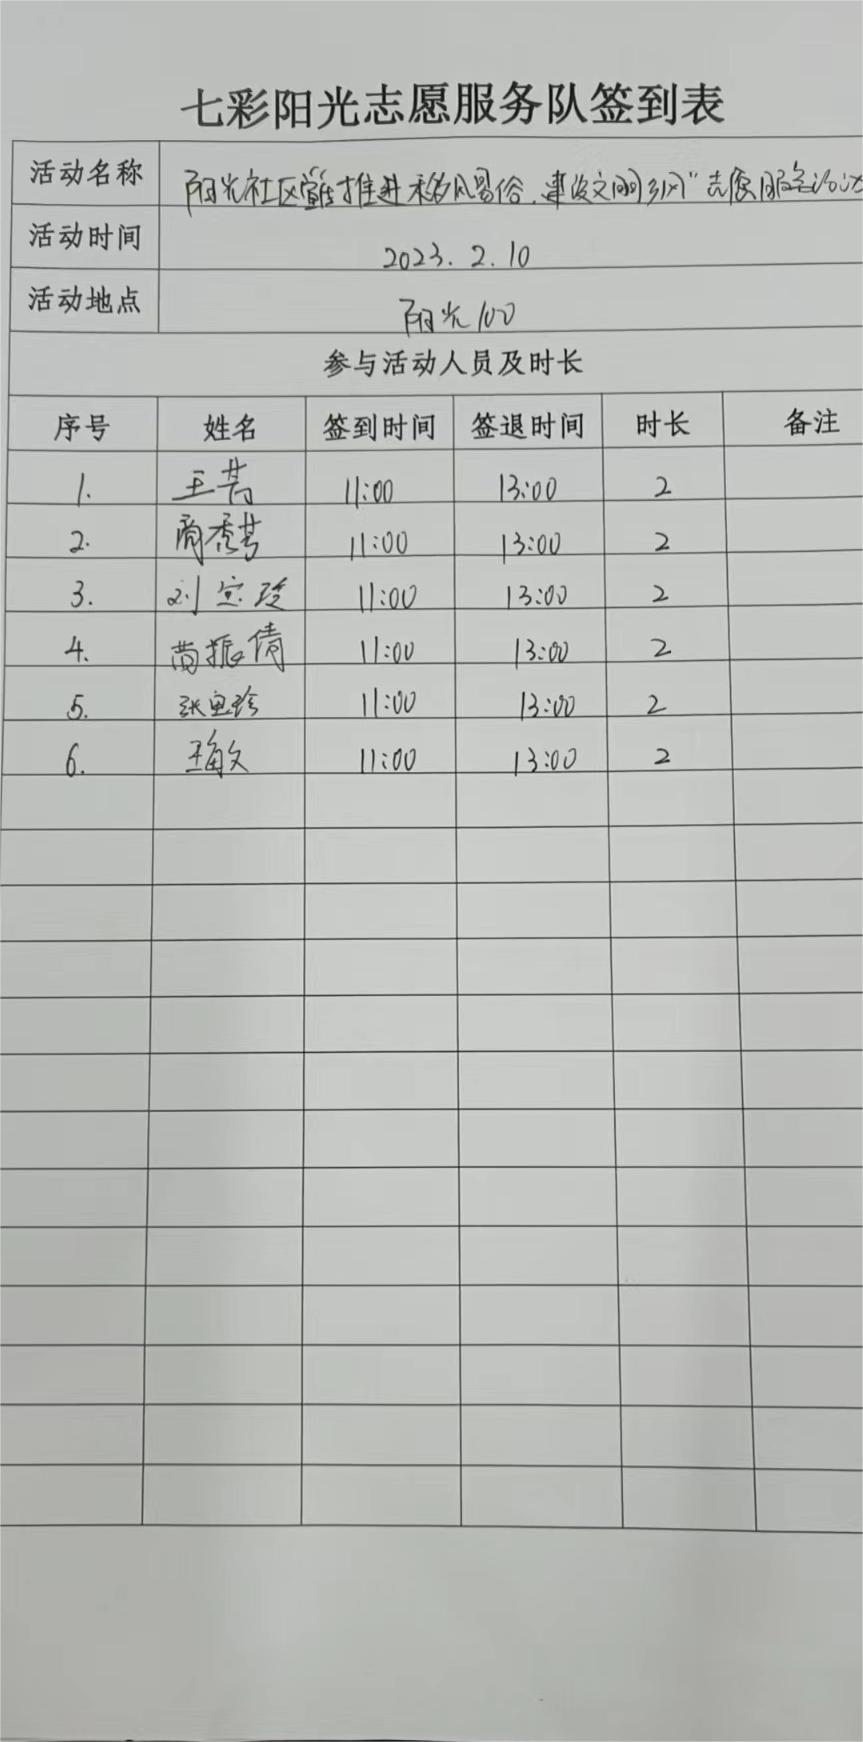 七彩阳光志愿服务队签到表
活动名称 阳光社区 推进移风易俗,建设文明乡风"志愿服务活动
活动时间 2023.2.10
活动地点 阳光100
参与活动人员及时长
序号 姓名 签到时间 签退时间 时长 备注
1. 王芳 11:00 13:00 2
2. 商秀芹 11:00 13:00 2
3. 刘宝玲 11:00 13:00 2
4. 苗振倩 11:00 13:00 2
5. 张宝珍 11:00 13:00 2
6. 王敏 11:00 13:00 2